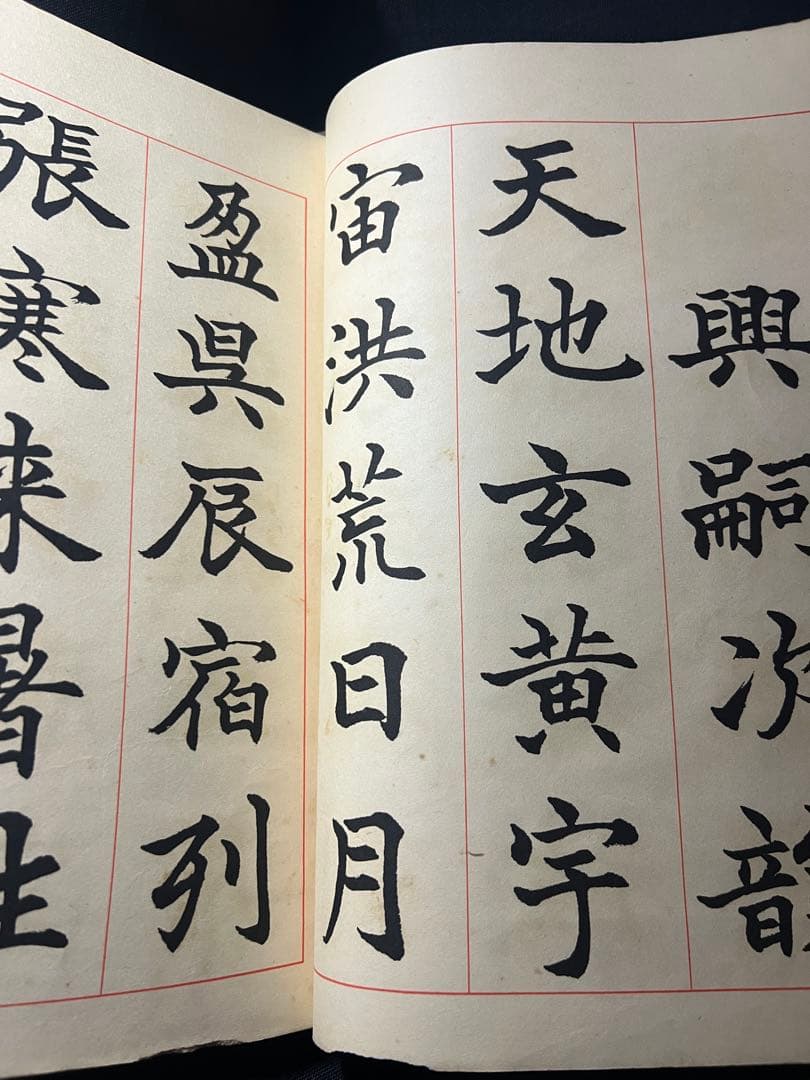 興嗣次韻
天地玄黄宇
宙洪荒日月
盈昃辰宿列
張寒来暑往